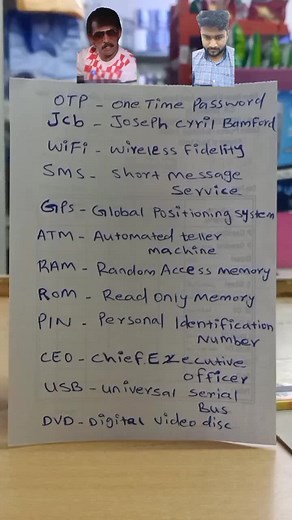 OTP - One Time Password
Jcb - Joseph Cyril Bamford
WiFi - Wireless Fidelity
SMS - Short Message
Service
GPS - Global Positioning System
ATM - Automated teller
machine
RAM - Random Access memory
ROM - Read Only Memory
PIN - Personal Identification
Number
CEO - Chief Executive
officer
USB - universal Serial
Bus
DVD - Digital Video disc